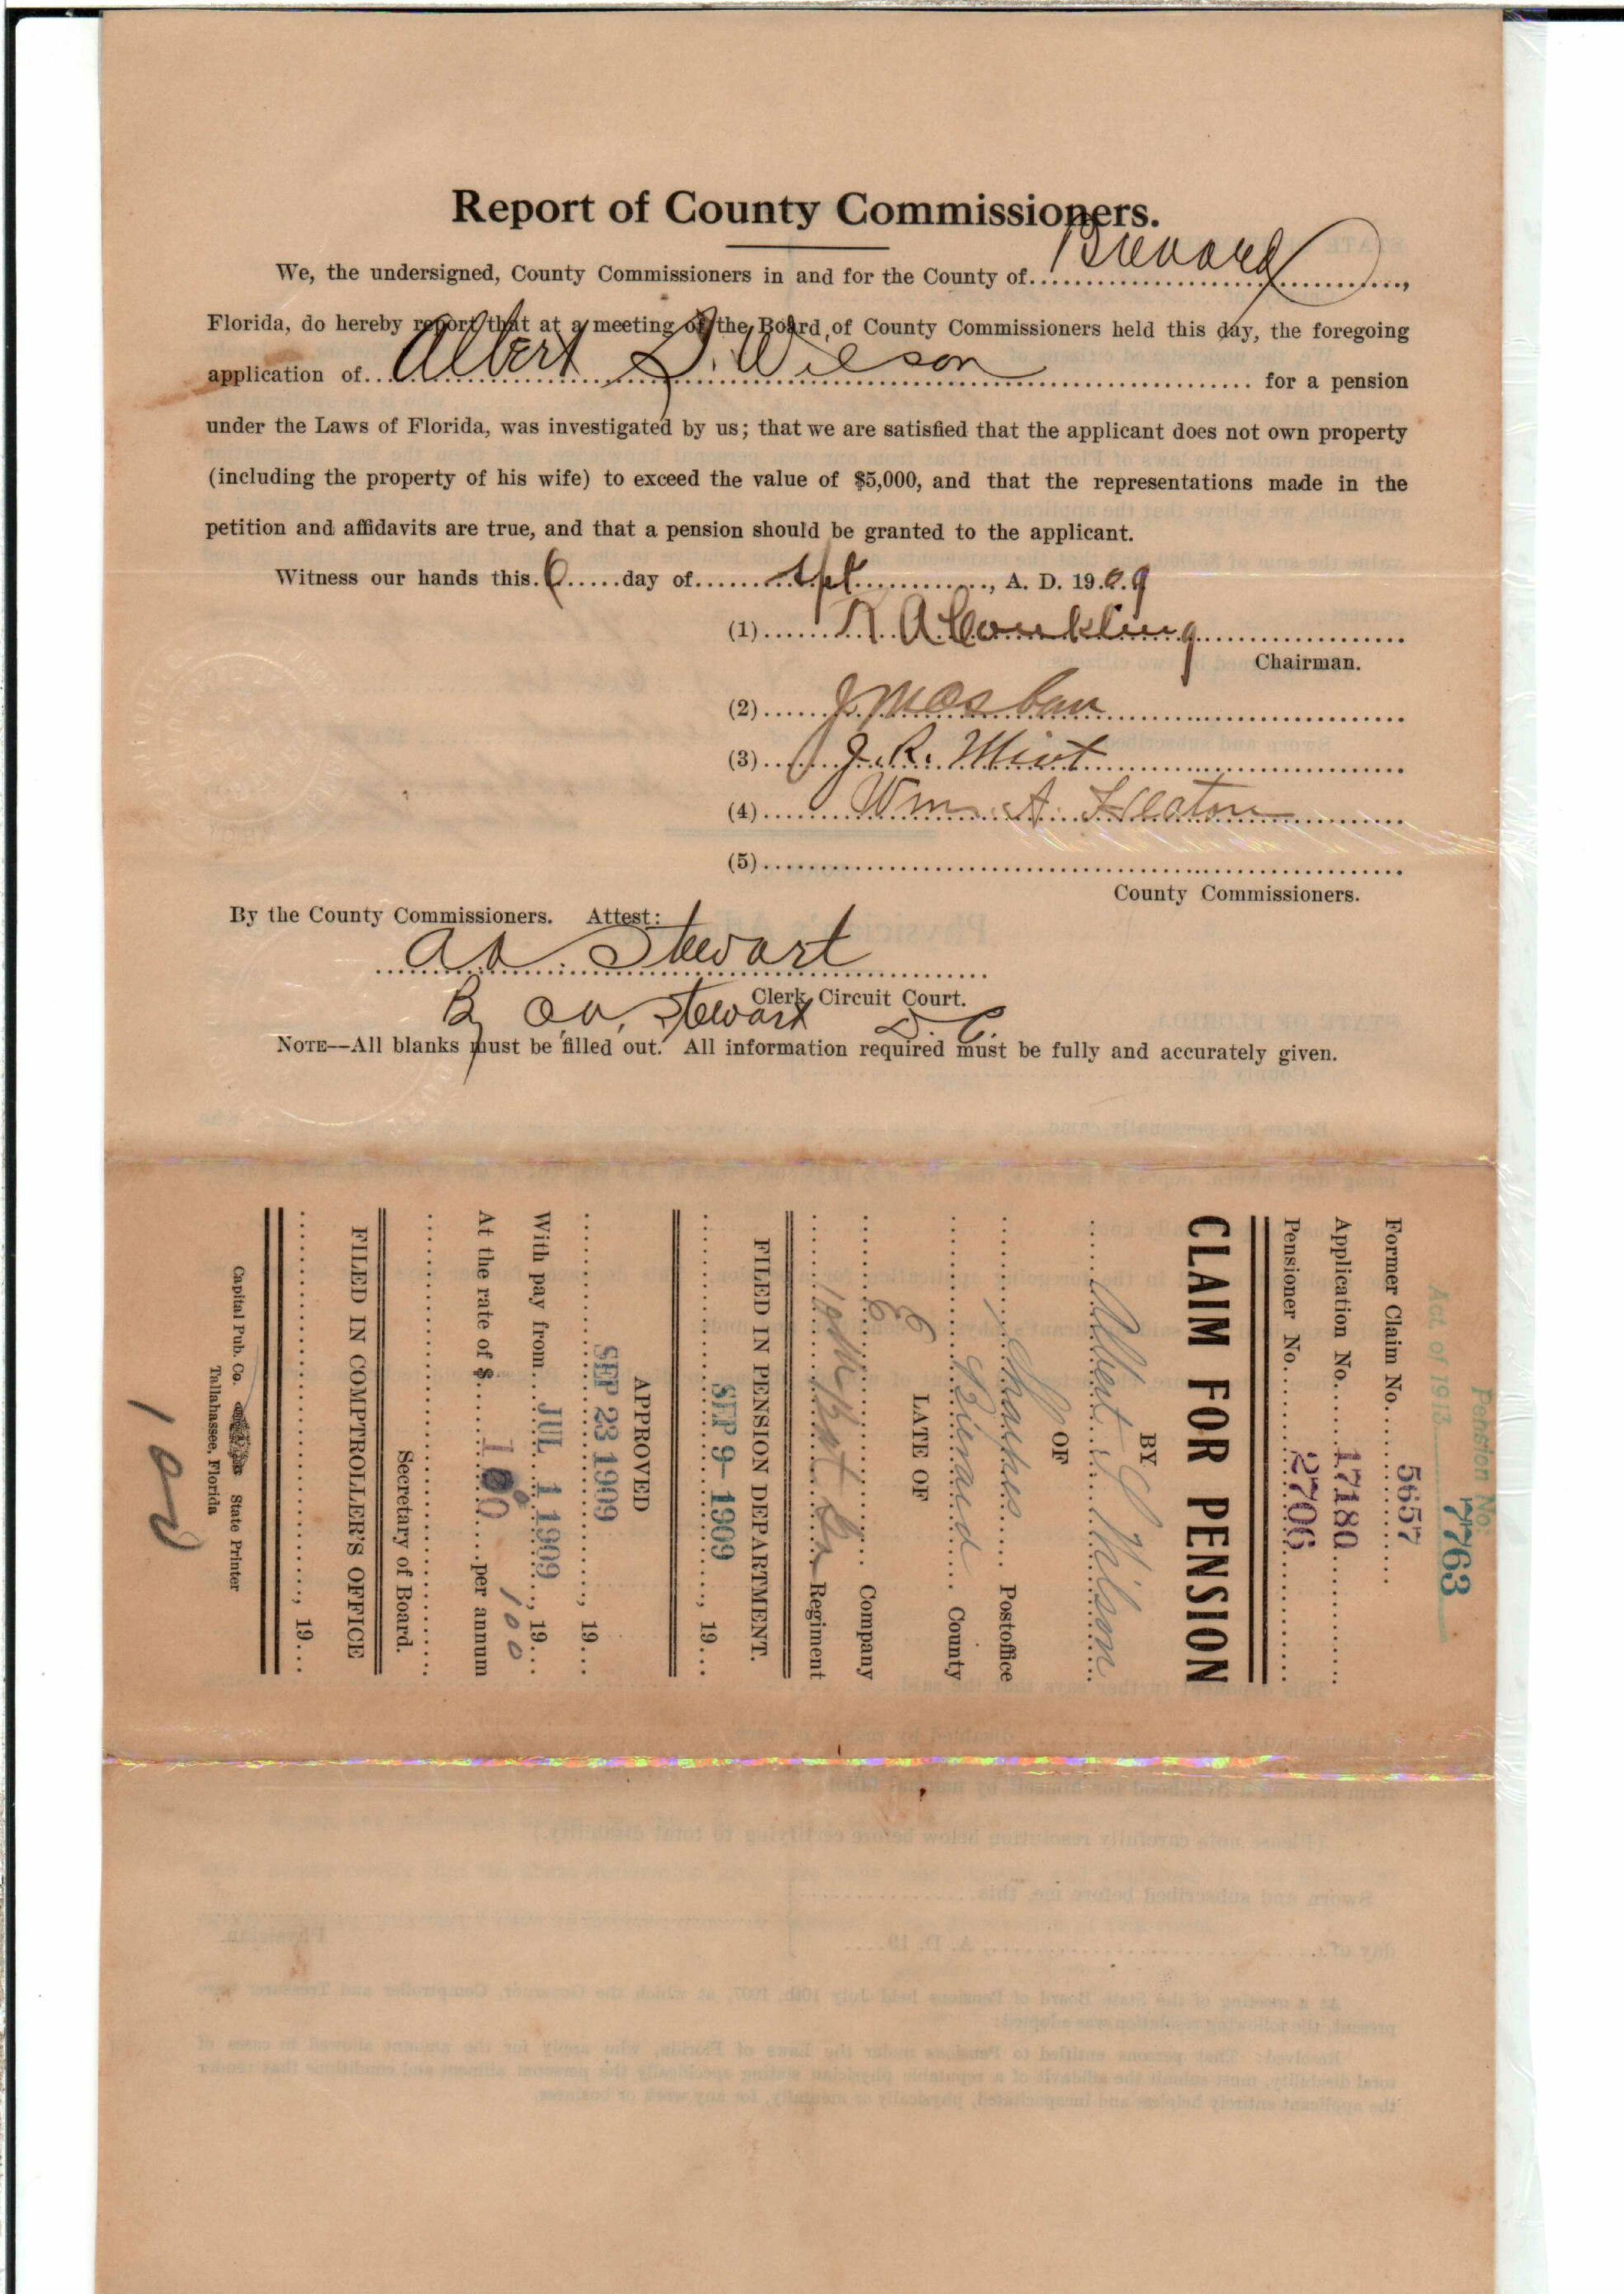 Report of County Commissioners.
We, the undersigned, County Commissioners in and for the County of Brevard,
Florida, do hereby report that at a meeting of the Board of County Commissioners held this day, the foregoing
application of Albert S. Wilson for a pension
under the Laws of Florida, was investigated by us; that we are satisfied that the applicant does not own property
(including the property of his wife) to exceed the value of $5,000, and that the representations made in the
petition and affidavits are true, and that a pension should be granted to the applicant.
Witness our hands this 6 day of Spt, A. D. 1909
(1) A Conkling
Chairman.
(2) J M Osban
(3) J. R. Mint
(4) Wm. A. Heaton
(5)
County Commissioners.
By the County Commissioners. Attest:
A A. Stewart
Clerk Circuit Court.
By O.A. Stewart D. C.
NOTE—All blanks must be filled out. All information required must be fully and accurately given.
Pension No. 7763
Act of 1913
Former Claim No. 5657
Application No. 17180
Pensioner No. 2706
CLAIM FOR PENSION
BY
Albert S Wilson
OF
Sharpes Postoffice
Brevard County
LATE OF
E Company
10th Bat Ga Regiment
FILED IN PENSION DEPARTMENT.
SEP 9- 1909, 19
APPROVED
SEP 23 1909, 19
With pay from JUL 1 1909, 19
At the rate of $ 100 per annum
Secretary of Board.
FILED IN COMPTROLLER'S OFFICE
, 19
Capital Pub. Co. State Printer
Tallahassee, Florida